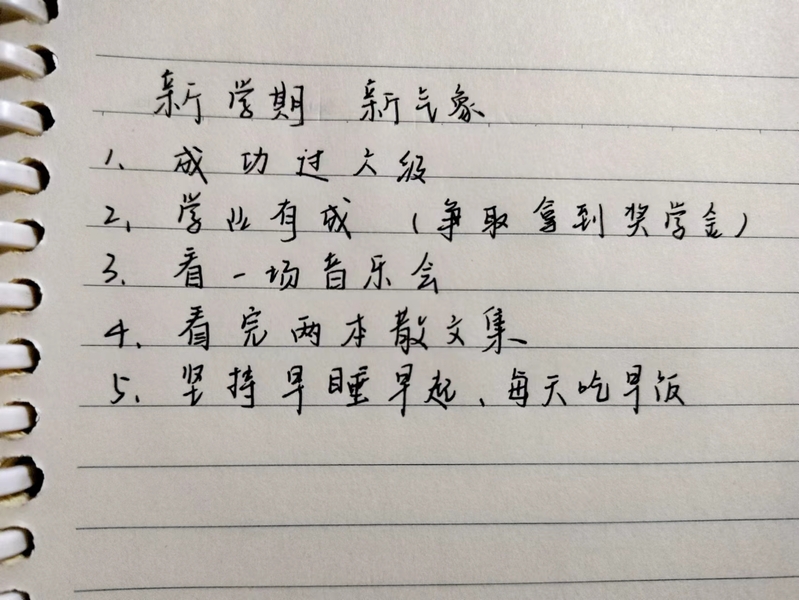 新学期 新气象
1、成功过六级
2、学业有成（争取拿到奖学金）
3、看一场音乐会
4、看完两本散文集
5、坚持早睡早起、每天吃早饭